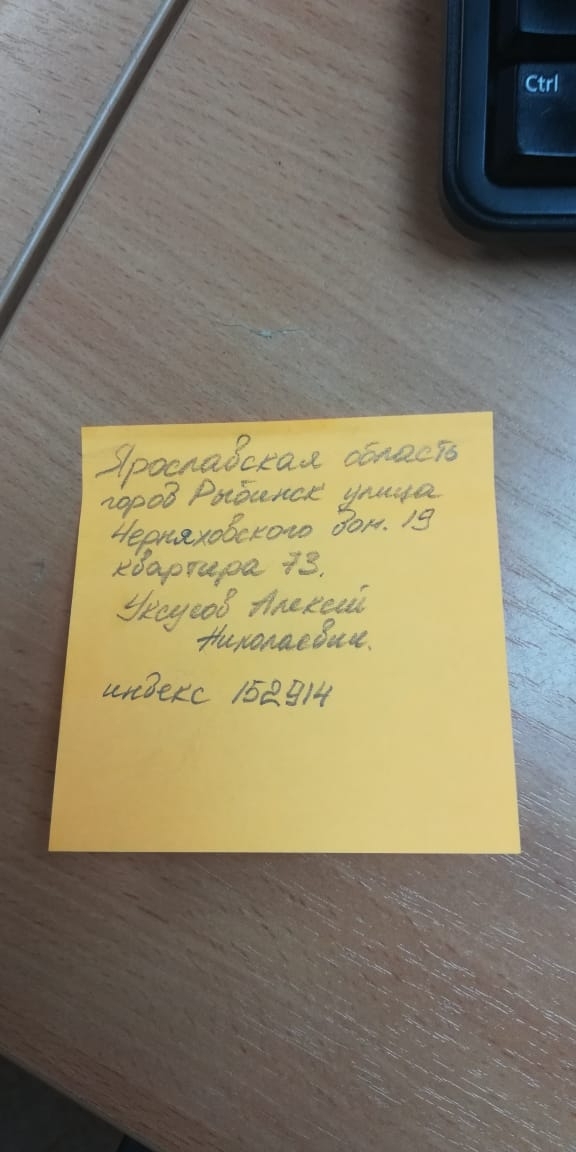 Ctrl
Ярославская область
город Рыбинск улица
Черняховского дом. 19
квартира 73.
Уксусов Алексей
Николаевич.
индекс 152914